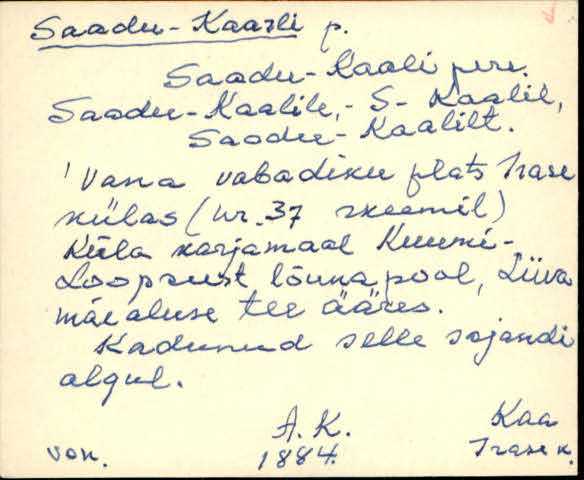 Saadu-Kaarli p.
Saadu-Kaali pere.
Saadu-Kaalile, - S- Kaalil,
Saadu-Kaalilt.
'Vana vabadiku plats Irase
külas (nr. 37 skeemil)
Küla karjamaal Kuuni-
Loopsust lõuna pool, Liiva
mäealuse tee ääres.
Kadunud selle sajandi
algul.
A.K. Kaa
von. 1884. Irase k.